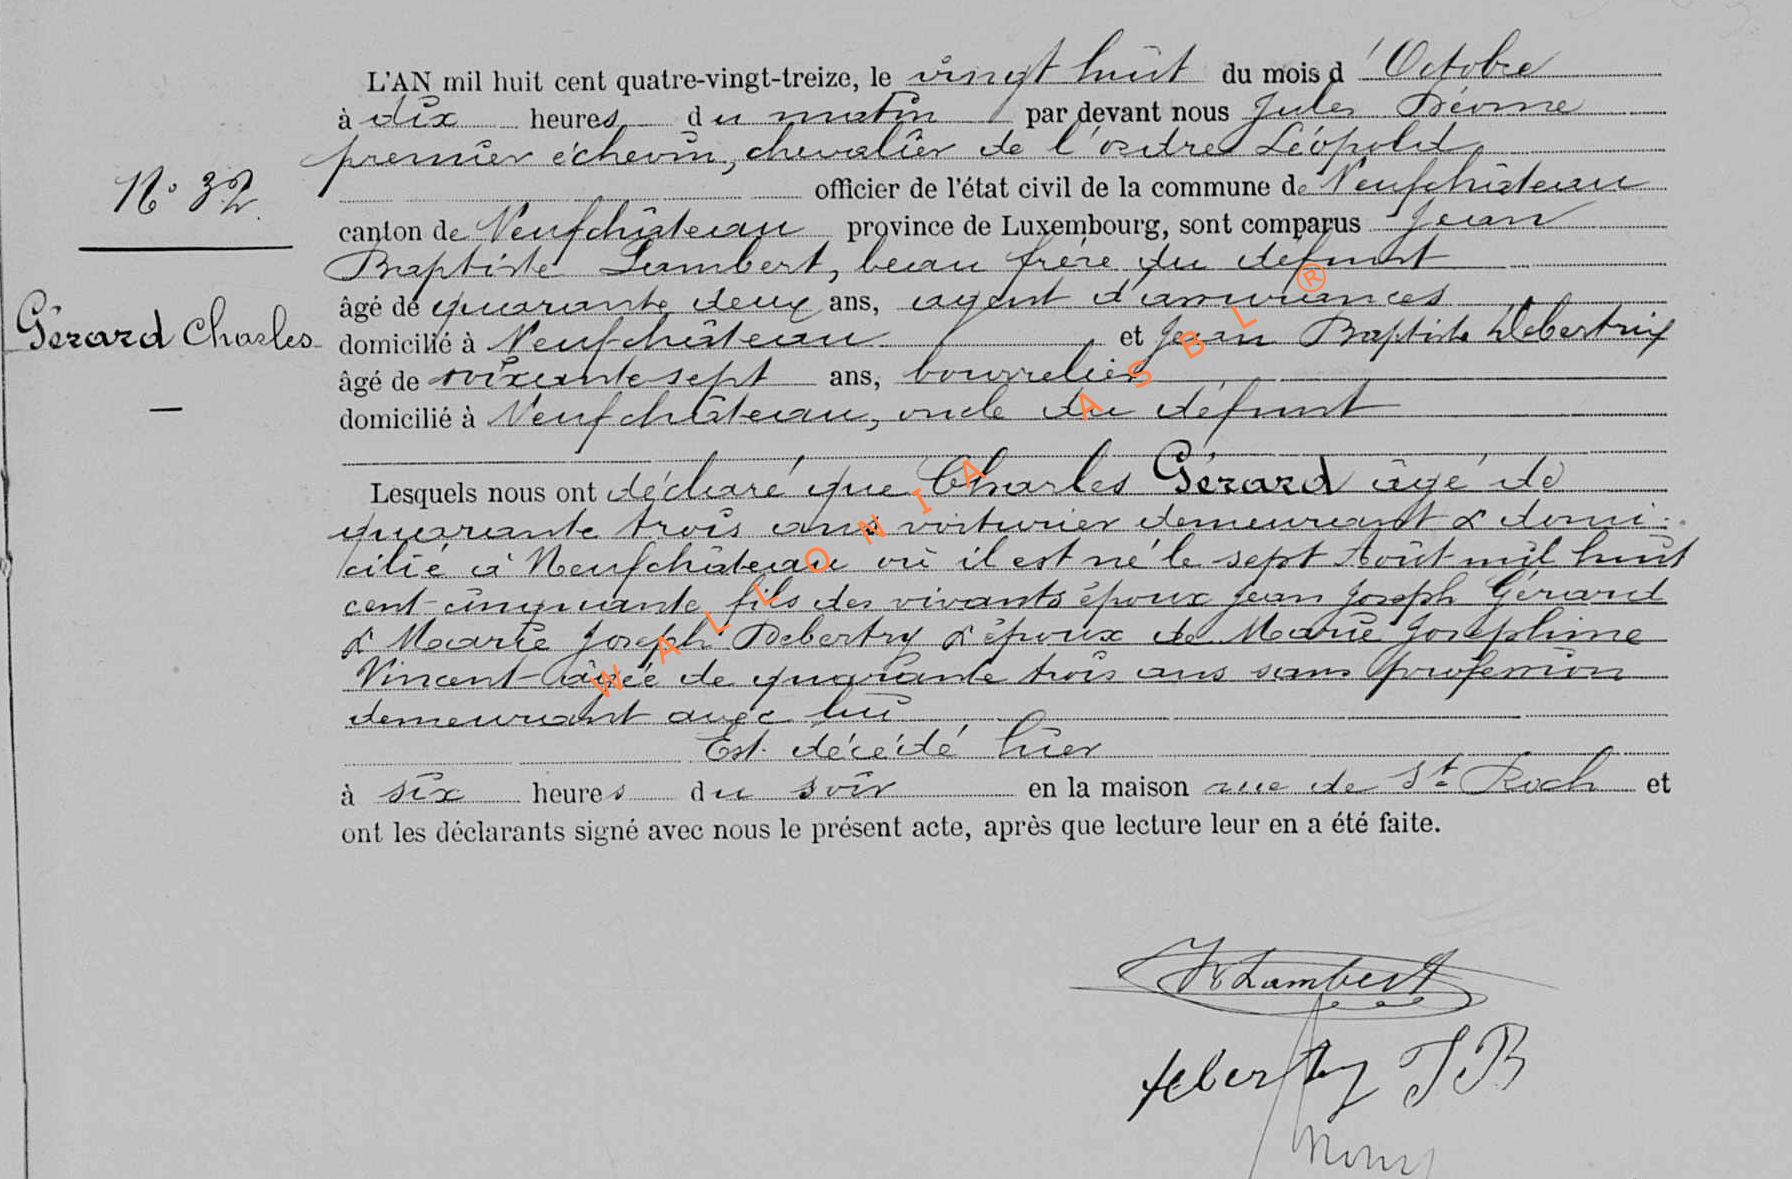 L'AN mil huit cent quatre-vingt-treize, le vingt huit du mois d'Octobre
à dix heures du matin par devant nous Jules
premier échevin, chevalier de l'ordre Léopold
officier de l'état civil de la commune de Neufchâteau
N° 32
canton de Neufchâteau province de Luxembourg, sont comparus Jean
Baptiste Lambert, beau frère du défunt
âgé de quarante deux ans, agent d'assurances
Gérard Charles
domicilié à Neufchâteau et Jean Baptiste Debertrix
âgé de soixante sept ans, bourrelier
domicilié à Neufchâteau, oncle du défunt
Lesquels nous ont déclaré que Charles Gérard âgé de
quarante trois ans voiturier demeurant & domi-
cilié à Neufchâteau où il est né le sept Août mil huit
cent cinquante fils des vivants époux Jean Joseph Gérard
& Marie Joseph Debertry & époux de Marie Joséphine
Vincent âgée de quarante trois ans sans profession
demeurant avec lui
Est décédé hier
à six heures du soir en la maison rue de St Roch et
ont les déclarants signé avec nous le présent acte, après que lecture leur en a été faite.
WALLONIA ASBL ®
JBLambert
debertry JB